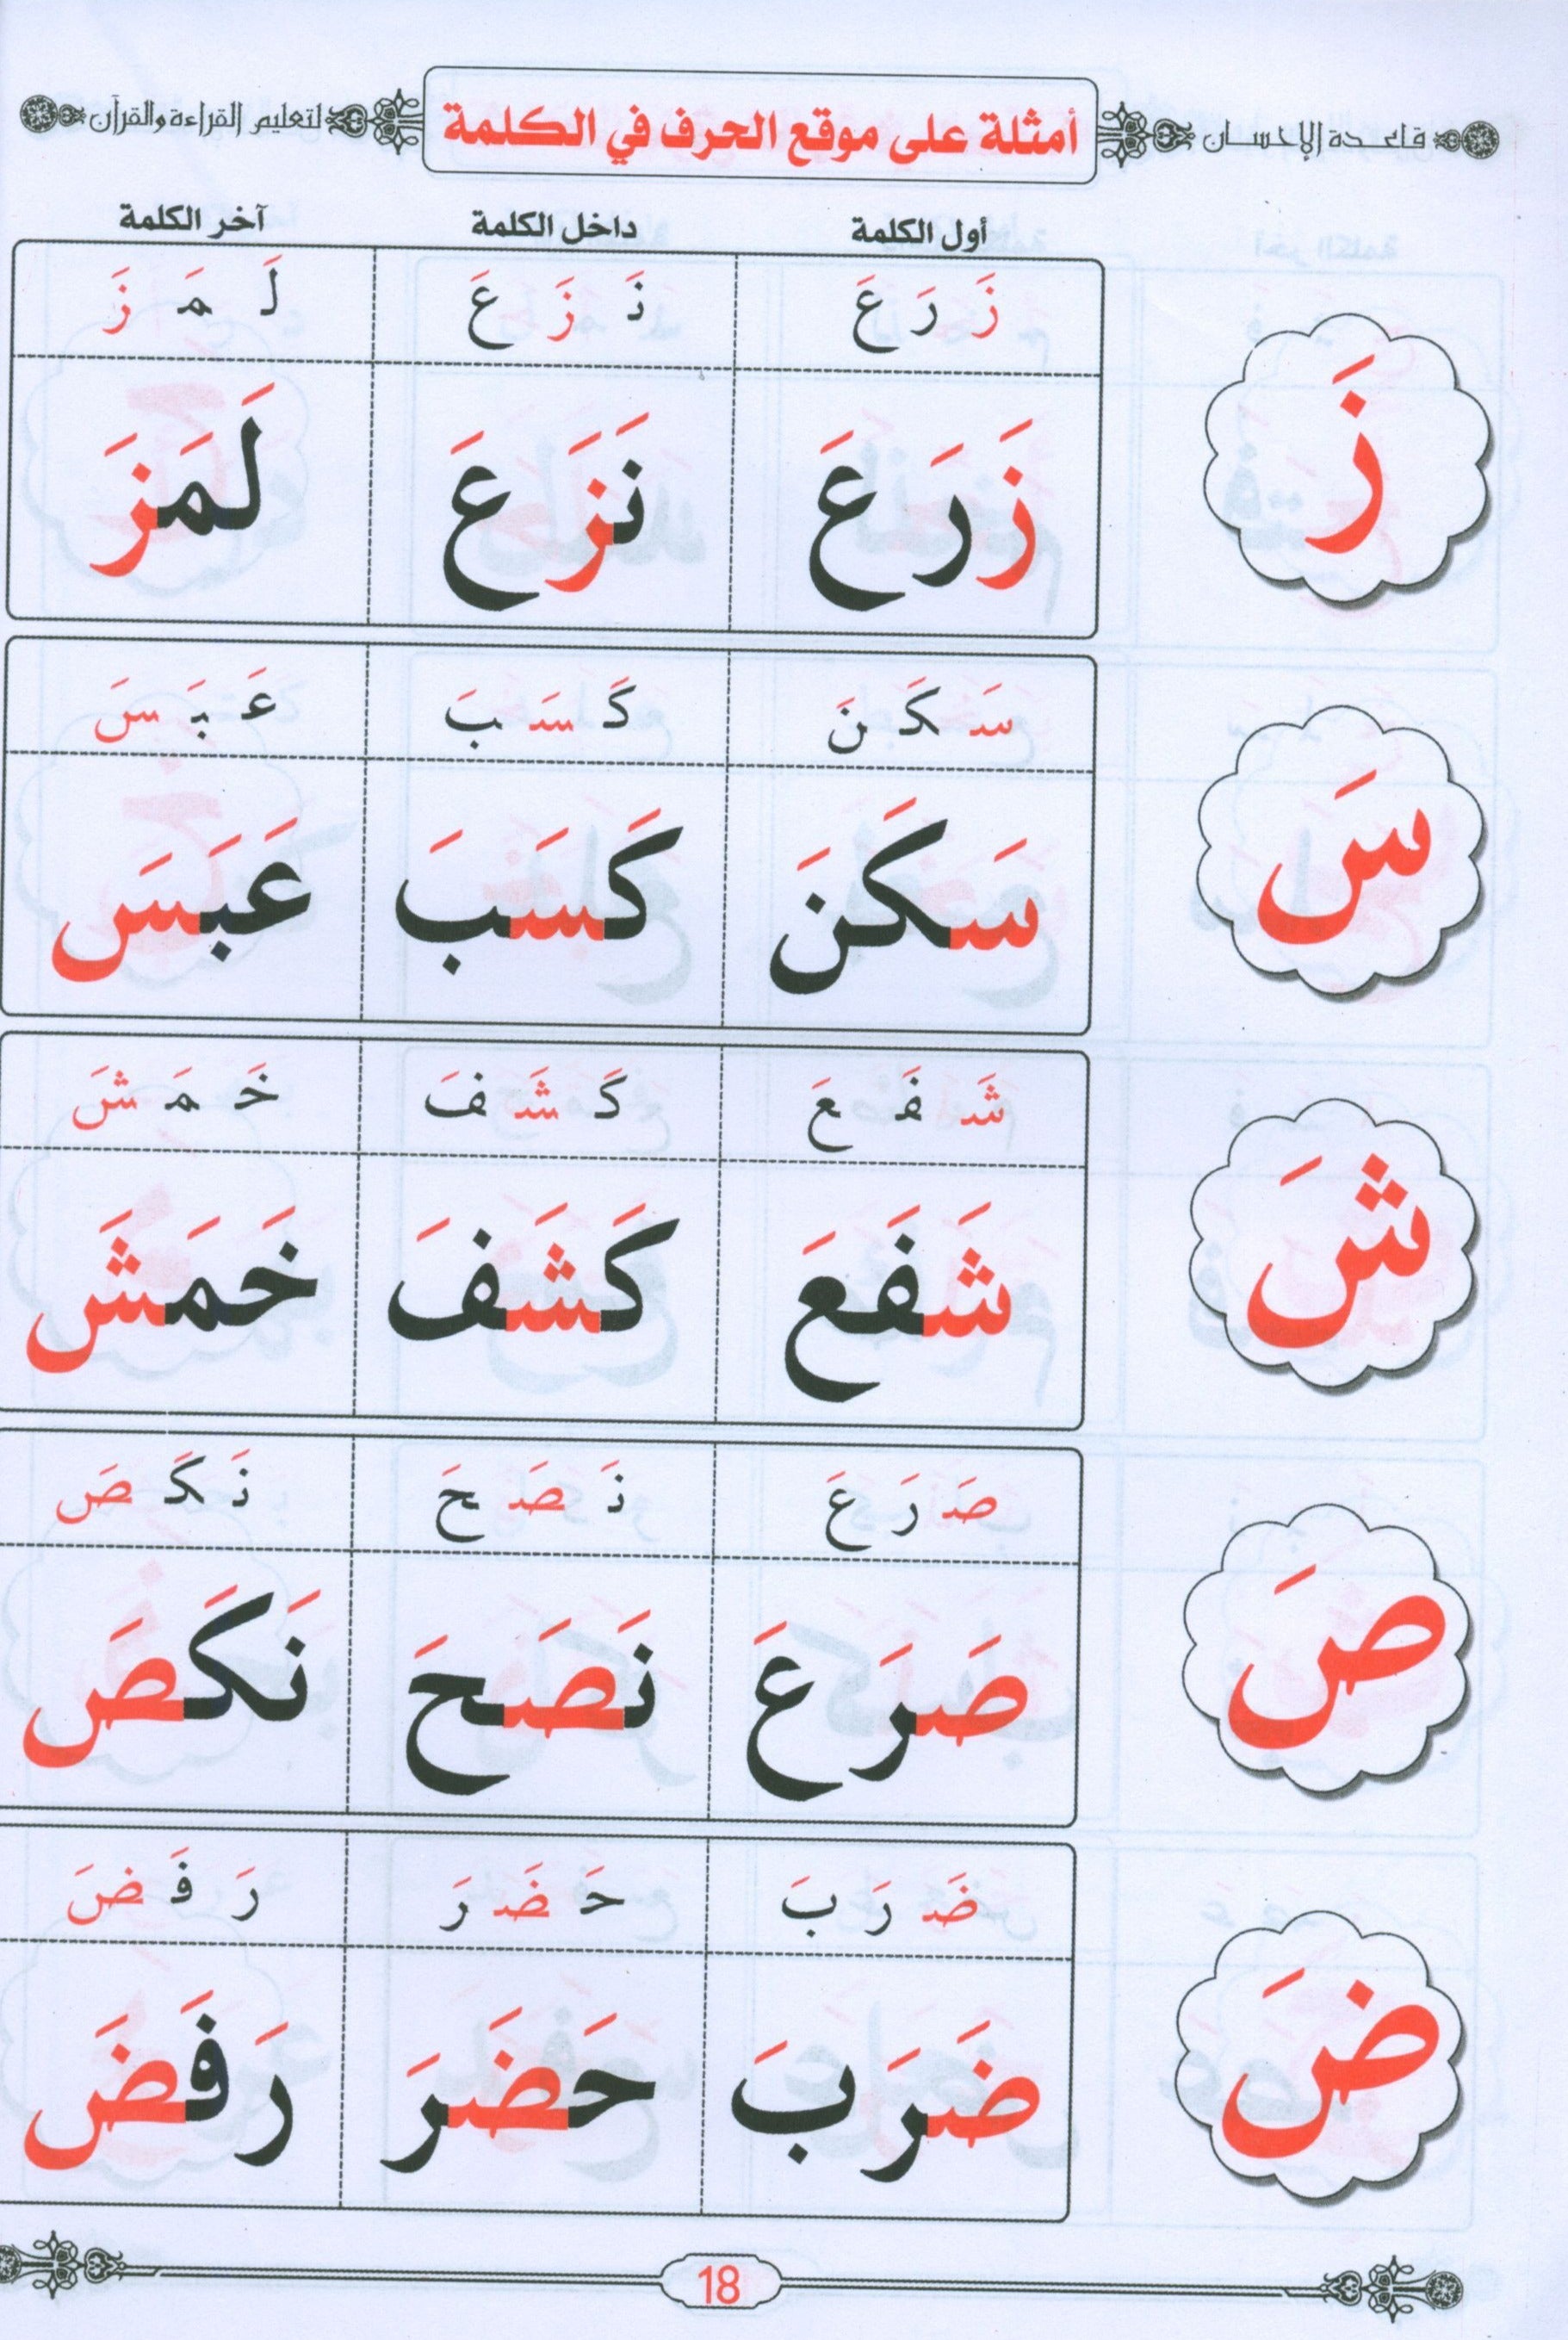 قاعدة الإحسان أمثلة على موقع الحرف في الكلمة لتعليم القراءة والقرآن
أول الكلمة داخل الكلمة آخر الكلمة
زَ رَ عَ نَ زَ عَ لَ مَ زَ
زَ زَرَعَ نَزَعَ لَمَزَ
سَ كَ نَ كَ سَ بَ عَ بَ سَ
سَ سَكَنَ كَسَبَ عَبَسَ
شَ فَ عَ كَ شَ فَ خَ مَ شَ
شَ شَفَعَ كَشَفَ خَمَشَ
صَ رَ عَ نَ صَ حَ نَ كَ صَ
صَ صَرَعَ نَصَحَ نَكَصَ
ضَ رَ بَ حَ ضَ رَ رَ فَ ضَ
ضَ ضَرَبَ حَضَرَ رَفَضَ
18